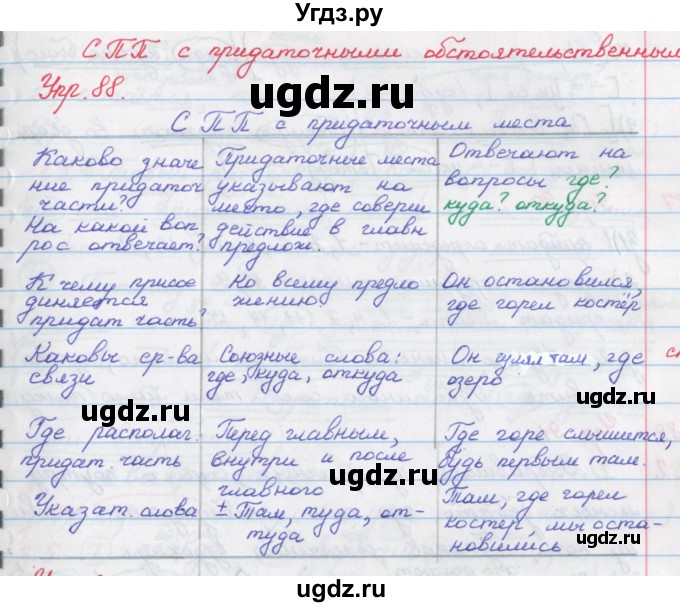 Угдз.ру
СПП с придаточными обстоятельственным
Упр. 88.
ugdz.ru
СПП с придаточным места
Каково значе Придаточные места Отвечают на
ние придаточ указывают на вопросы где?
части? место, где соверш куда? откуда?
На какой воп- действие в главн
рос отвечает? предлож.
ugdz.ru
К чему присое Ко всему предло Он остановился,
диняется жению где горел костёр
придат часть?
ugdz.ru
Каковы ср-ва Союзные слова: Он гулял там, где
связи где, куда, откуда озеро
ugdz.ru
Где располаг. Перед главным, Где горе слышится,
придат. часть внутри и после будь первым там.
главного
Указат. слова ± Там, туда, от- Там, где горел
туда костер, мы оста-
новились
ugdz.ru
ugdz.ru